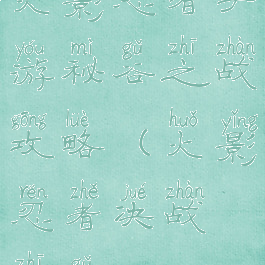 影忍者
yóu mì gǔ zhī zhàn
游秘谷之战
gōng lüè huǒ yǐng
攻略（火影
rěn zhě jué zhàn
忍者决战
zhī gǔ